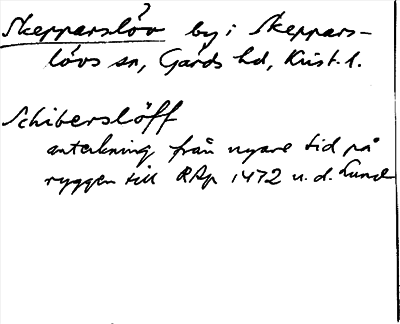 Skepparslöv by i Skeppars-
lövs sn, Gärds hd, Krist. l.
Schiberslöff
anteckning från nyare tid på
ryggen till RAp 1472 u. d. Lund